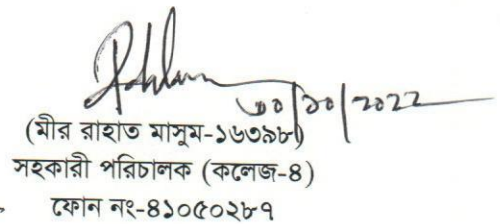 ৩০/১০/২০২২
(মীর রাহাত মাসুম-১৬৩৯৮)
সহকারী পরিচালক (কলেজ-৪)
ফোন নং-৪১০৫০২৮৭